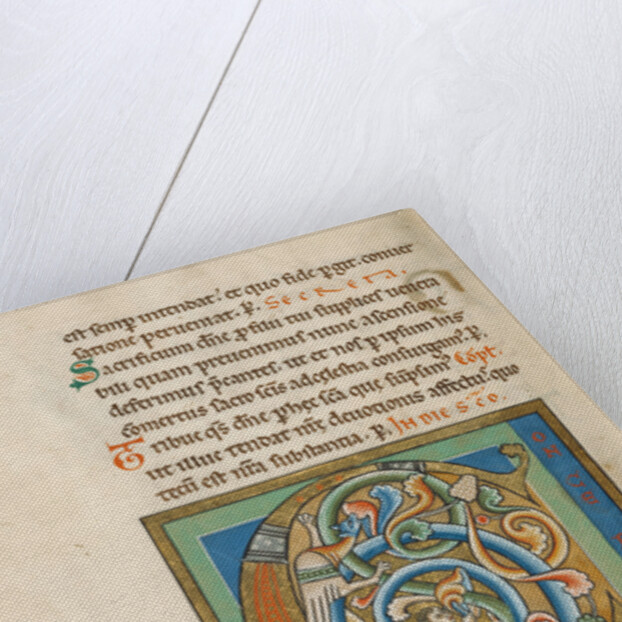 est semp intendat. et quo fide pgit. conver
satione perveniat. p. Secreta.
Sacrificium dñe p filii tui supplices venera
bili quam prevenimus nunc ascensione
deferimus pcantes. ut et nos p ipsum his
comertiis sacro scīs ad celestia consurgam⁹. p.
Tribue qs dñe p hec sc̄a que sūpsim⁹ Cōpl.
ut illuc tendat nr̄e devotionis affectus quo
tecū est nr̄a substantia. p. IN DIE S̄CO.